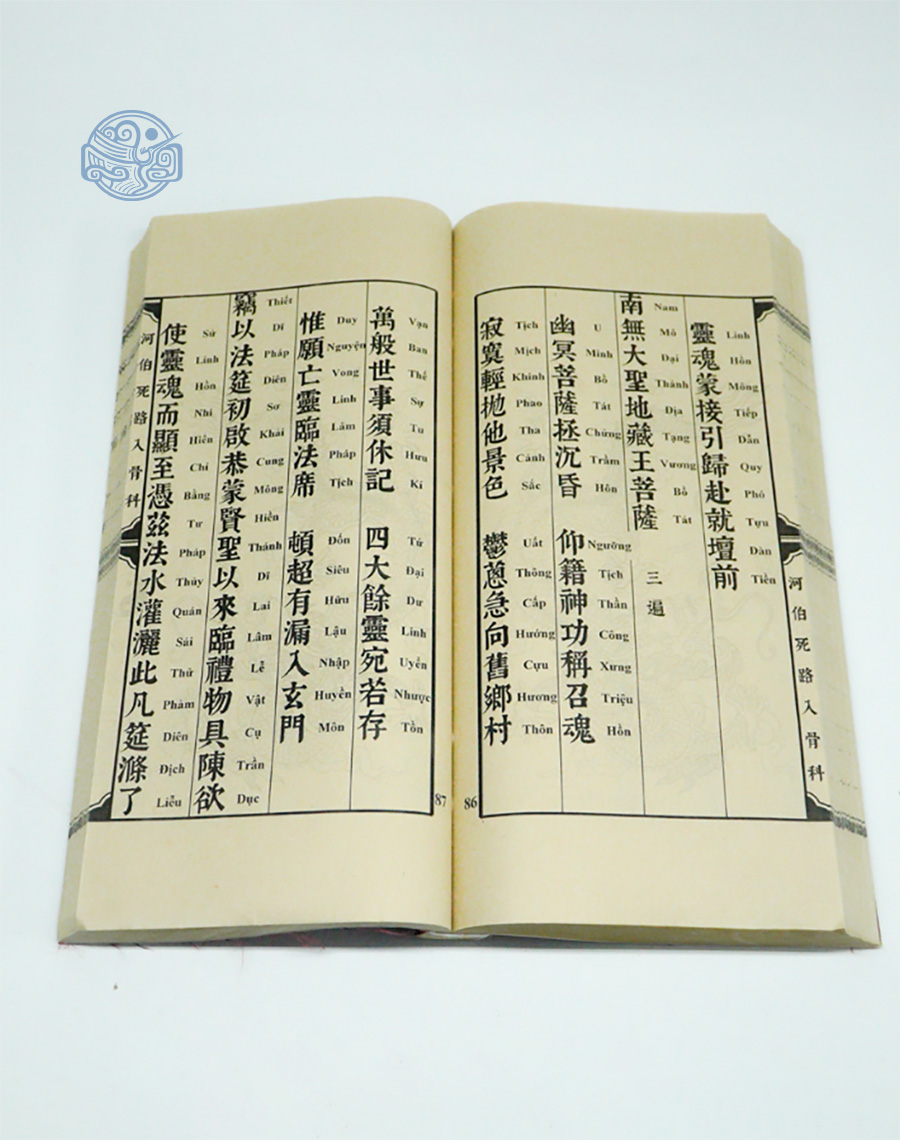 河伯死路入骨科
靈魂蒙接引歸赴就壇前
Linh Hồn Mông Tiếp Dẫn Quy Phó Tựu Đàn Tiền
南無大聖地藏王菩薩 三遍
Nam Mô Đại Thánh Địa Tạng Vương Bồ Tát
幽冥菩薩拯沉昏 仰籍神功稱召魂
U Minh Bồ Tát Chứng Trầm Hôn Ngưỡng Tịch Thần Công Xưng Triệu Hồn
寂寞輕拋他景色 鬱蔥急向舊鄉村
Tịch Mịch Khinh Phao Tha Cảnh Sắc Uất Thông Cấp Hướng Cựu Hương Thôn
86
萬般世事須休記 四大餘靈宛若存
Vạn Ban Thế Sự Tu Hưu Kí Tứ Đại Dư Linh Uyển Nhược Tồn
惟願亡靈臨法席 頓超有漏入玄門
Duy Nguyện Vong Linh Lâm Pháp Tịch Đốn Siêu Hữu Lậu Nhập Huyền Môn
竊以法筵初啟恭蒙賢聖以來臨禮物具陳欲
Thiết Dĩ Pháp Diên Sơ Khải Cung Mông Hiền Thánh Dĩ Lai Lâm Lễ Vật Cụ Trần Dục
使靈魂而顯至憑茲法水灌灑此凡筵滌了
Sử Linh Hồn Nhi Hiển Chí Bằng Tư Pháp Thủy Quán Sái Thử Phàm Diên Địch Liễu
河伯死路入骨科
87